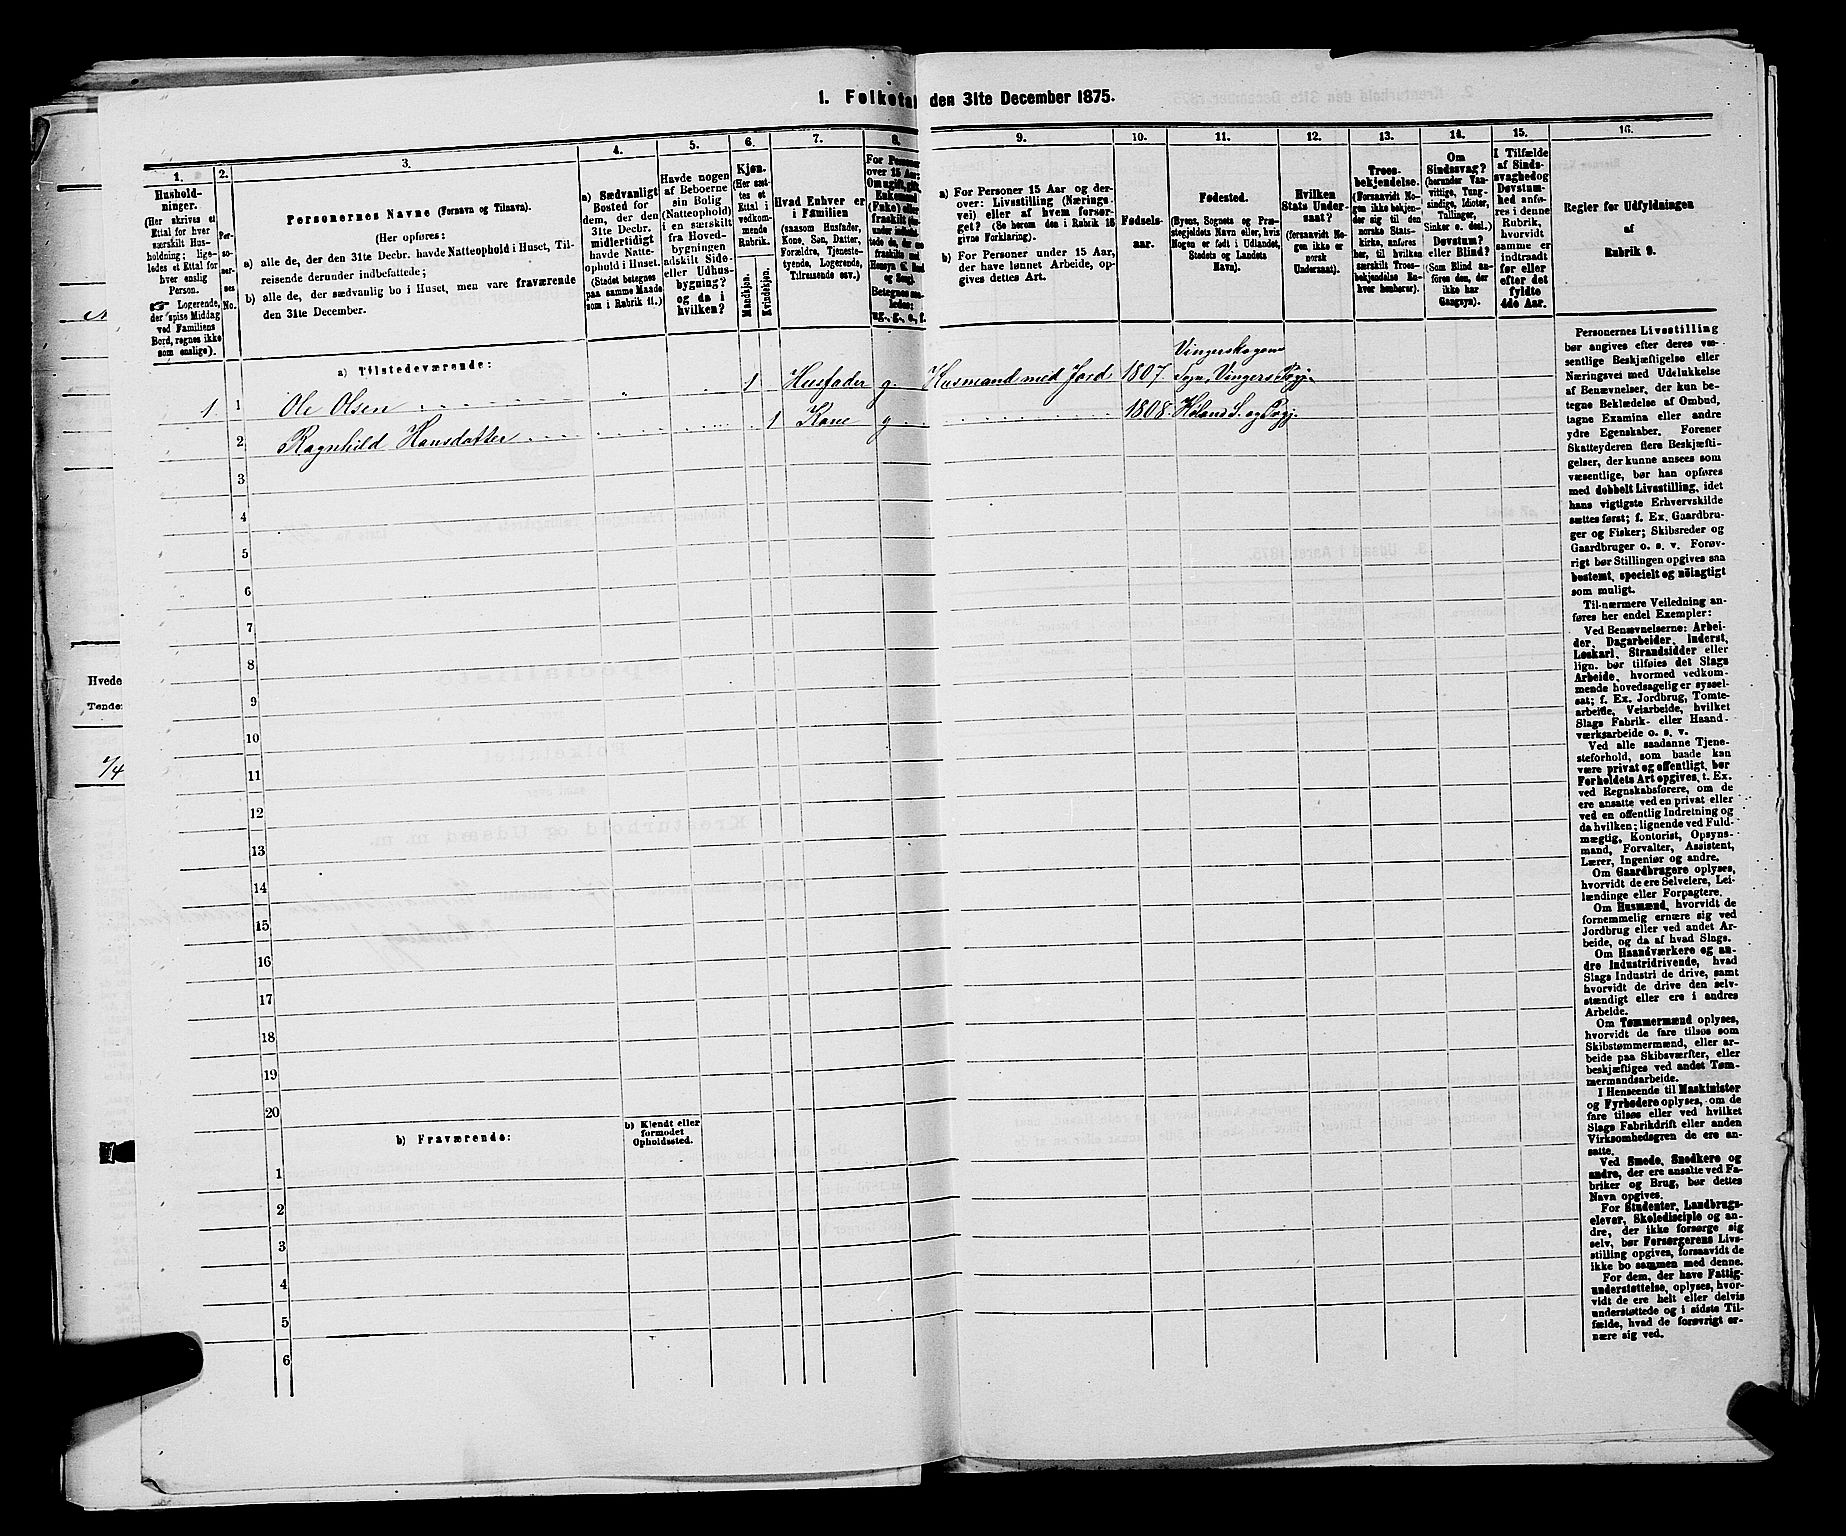 1. Folketal den 31te December 1875.
1.
2.
3.
4.
5.
6.
7.
8.
9.
10.
11.
12.
13.
14.
15.
16.
Hushold-
ninger.
(Her skrives et
Ettal for hver
særskilt Hus-
holdning; lige-
ledes et Ettal for
hver enslig
Person.
☞ Logerende,
der spise Middag
ved Familiens
Bord, regnes ikke
som enslige).
Per-
so-
ner-
nes
No.
Personernes Navne (Fornavn og Tilnavn).
(Her opføres:
a) alle de, der den 31te Decbr. havde Natteophold i Huset, Til-
reisende derunder indbefattede;
b) alle de, der sædvanlig bo i Huset, men vare fraværende
den 31te December.
a) Sædvanligt
Bosted for
dem, der den
31te Decbr.
midlertidigt
havde Natte-
ophold i Huset
(Stedet betegnes
paa samme Maade
som i Rubrik 11.)
Havde nogen
af Beboerne
sin Bolig
(Natteophold)
i en særskilt
fra Hoved-
bygningen
adskilt Side-
eller Udhus-
bygning?
og da i
hvilken?
Kjøn.
(Her sæt-
tes et
Ettal i
vedkom-
mende
Rubrik.
Mandkjøn.
Kvindekjøn.
Hvad Enhver er
i Familien
(saasom Husfader,
Kone, Søn, Datter,
Forældre, Tjeneste-
tyende, Logerende,
Tilreisende osv.)
For Personer
over 15 Aar:
Om ugift, gift,
Enkemand
(Enke) eller
fraskilt
Betegnes saa-
ledes:
ug., g., e., f.
a) For Personer 15 Aar og der-
over: Livsstilling (Nærings-
vei) eller af hvem forsør-
get? (Se herom den i Rubrik 16
givne Forklaring).
b) For Personer under 15 Aar,
der have lønnet Arbeide, op-
gives dettes Art.
Fødsels-
aar.
Fødested.
(Byens, Sognets og Præ-
stegjeldets Navn eller, hvis
Nogen er født i Udlandet,
Stedets og Landets
Navn).
Hvilken
Stats Under-
saat?
(forsaavidt No-
gen ikke er
norsk
Undersaat).
Troes-
bekjendelse.
(Forsaavidt No-
gen ikke bekjen-
der sig til den
norske Stats-
kirke, anføres
her, til hvilken
særskilt Troes-
bekjendelse En-
hver henhører).
Om
Sindssvag?
(herunder Van-
vittige, Tung-
sindige, Idioter,
Tullinger,
Sinker o. desl.)
Døvstum?
eller Blind?
(Som Blind an-
føres den, der
ikke har
Gangsyn).
I Tilfælde
af Sinds-
svaghed og
Døvstum-
hed anfø-
res i denne
Rubrik,
hvorvidt
samme er
indtraadt
før eller
efter det
fyldte
4de Aar.
Regler for Udfyldningen
af
Rubrik 9.
a) Tilstedeværende:
Vingerskogens
1 1 Ole Olsen 1 Husfader g. Husmand med Jord 1807 Sogn, Vingers Prgj.
2 Ragnhild Hansdatter 1 Kone g 1808 Høland S. og Prgj
3
4
5
6
7
8
9
10
11
12
13
14
15
16
17
18
19
20
b) Fraværende:
b) Kjendt eller
formodet
Opholdssted.
1
2
3
4
5
6
Personernes Livsstilling
bør angives efter deres væ-
sentlige Beskjæftigelse eller
Næringsvei med Udelukkelse
af Benævnelser, der kun be-
tegne Beklædelse af Ombud,
tagne Examina eller andre
ydre Egenskaber. Forener
Skatteyderen flere Beskjæfti-
gelser, der kunne ansees som
væsentlige, bør han opføres
med dobbelt Livsstilling, idet
hans vigtigste Erhvervskilde
sættes først; f. Ex. Gaardbru-
ger og Fisker; Skibsreder og
Gaardbruger o. s. v. Forøv-
rigt bør Stillingen opgives saa
bestemt, specielt og nøiagtigt
som muligt.
Til nærmere Veiledning an-
føres her endel Exempler:
Ved Benævnelserne: Arbei-
der, Dagarbeider, Inderst,
Løskarl, Strandsidder eller
lign. bør tilføies det Slags
Arbeide, hvormed vedkom-
mende hovedsagelig er syssel-
sat; f. Ex. Jordbrug, Tomte-
arbeide, Veiarbeide, hvilket
Slags Fabrik- eller Haand-
værksarbeide o. s. v.
Ved alle saadanne Tjene-
steforhold, som baade kan
være privat og offentligt, bør
Forholdets Art opgives, t. Ex.
ved Regnskabsførere, om de
ere ansatte ved en privat eller
ved en offentlig Indretning og
da hvilken; lignende ved Fuld-
mægtig, Kontorist, Opsyns-
mand, Forvalter, Assistent,
Lærer, Ingeniør og andre.
Om Gaardbrugere oplyses,
hvorvidt de ere Selveiere, Lei-
lændinge eller Forpagtere.
Om Husmænd, hvorvidt de
fornemmelig ernære sig ved
Jordbrug eller ved andet Ar-
beide, og da af hvad Slags.
Om Haandværkere og an-
dre Industridrivende, hvad
Slags Industri de drive, samt
hvorvidt de drive den selv-
stændigt eller ere i andres
Arbeide.
Om Tømmermænd oplyses,
hvorvidt de fare tilsøs som
Skibstømmermænd, eller ar-
beide paa Skibsværfter, eller
beskjæftiges ved andet Tøm-
mermandsarbeide.
I Henseende til Maskinister
og Fyrbødere oplyses, om de
fare tilsøs eller ved hvilket
Slags Fabrikdrift eller anden
Virksomhedsgren de ere an-
satte.
Ved Smede, Snedkere og
andre, der ere ansatte ved Fa-
briker og Brug, bør dettes
Navn opgives.
For Studenter, Landbrugs-
elever, Skoledisciple og an-
dre, der ikke forsørge sig
selv, bør Forsørgerens Livs-
stilling opgives, forsaavidt de
ikke bo sammen med denne.
For dem, der have Fattig-
understøttelse, oplyses, hvor-
vidt de ere helt eller delvis
understøttede og i sidste Til-
fælde, hvad de forøvrigt er-
nære sig ved.
Hvede
Tønder
1/4